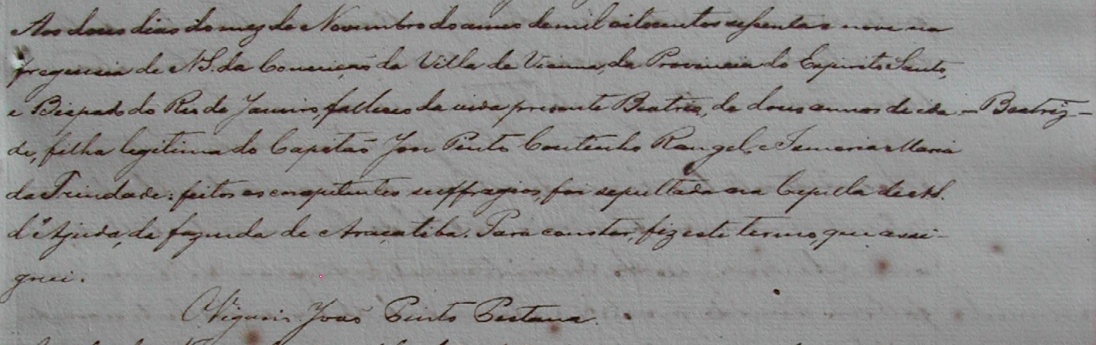 Aos doces dias do mez de Novembro do anno de mil oitocentos sessenta e nove na
freguesia de N.S. da Conceição da Villa de Vianna, da Provincia do Espirito Santo,
e Bispado do Rio de Janeiro, falleceo da vida presente Beatriz, de dous annos de ida- - Beatriz -
de, filha legitima do Capitão José Pinto Coutinho Rangel, e Maria
da Trindade: feitos os competentes suffragios, foi sepultada na Capella de N.
d'Ajuda, da fazenda de Araçatiba. Para constar, fiz este termo, que assi-
gnei.
O Vigario João Pinto Pestana.